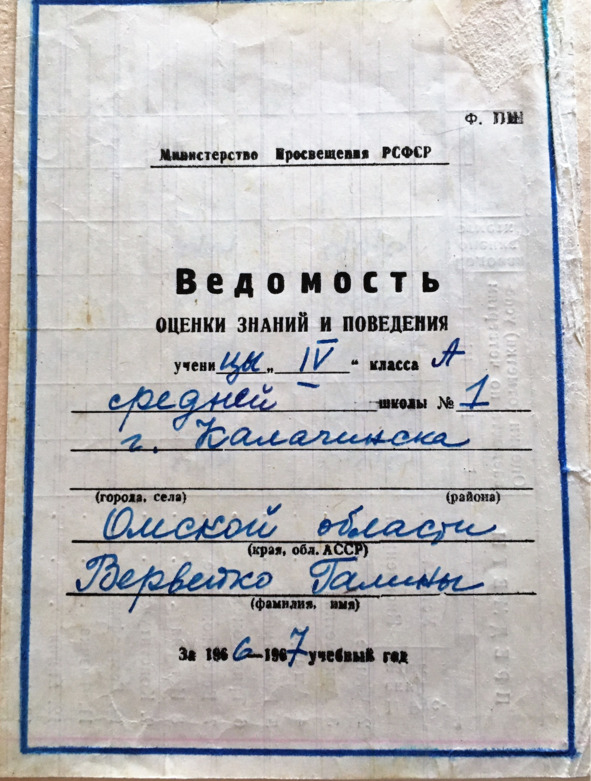 Ф.
Министерство Просвещения РСФСР
Ведомость
ОЦЕНКИ ЗНАНИЙ И ПОВЕДЕНИЯ
учени цы „ IV “ класса А
средней школы № 1
г. Калачинска
(города, села) (района)
Омской области
(края, обл. АССР)
Вервейко Галины
(фамилия, имя)
За 1966–1967 учебный год